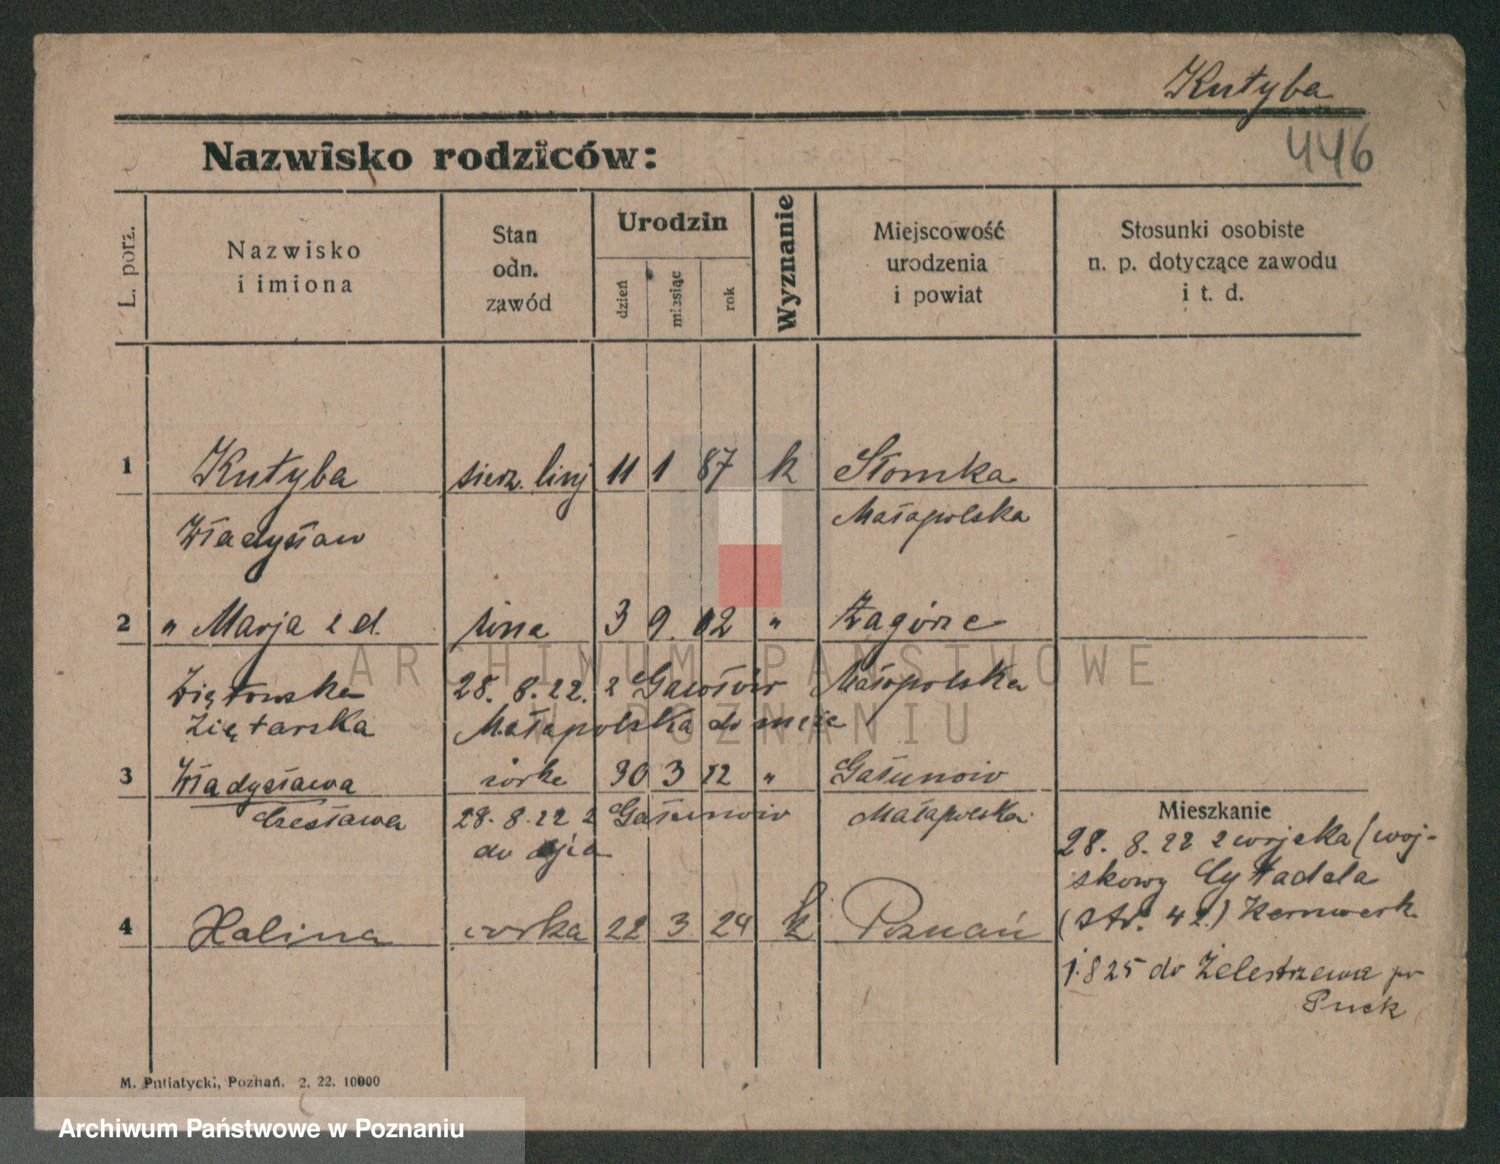 Kutyba
446
Nazwisko rodziców:
L. porz.
Nazwisko
i imiona
Stan
odn.
zawód
Urodzin
dzień
miesiąc
rok
Wyznanie
Miejscowość
urodzenia
i powiat
Stosunki osobiste
n. p. dotyczące zawodu
i t. d.
1 Kutyba sierż. 11 1 87 k Słomka
Władysław Małopolska
2 " Marja z d. żona 3 9. 02 " Zagórze
Ziętarska 28. 8. 22. z Małopolska
Małopolska do męża
3 Władysława córka 30 3 22 "
Czesława 28. 8. 22 z Małopolska
do ojca
Mieszkanie
28. 8. 22 z wojska (woj-
skowy Cytadela
(str. 42.) Kernwerk
4 Halina córka 22 3 24 k Poznań
1.8 25 do Żelestrzewa
Puck
M. Putiatycki, Poznań. 2. 22. 10000
ARCHIWUM PAŃSTWOWE
W POZNANIU
Archiwum Państwowe w Poznaniu